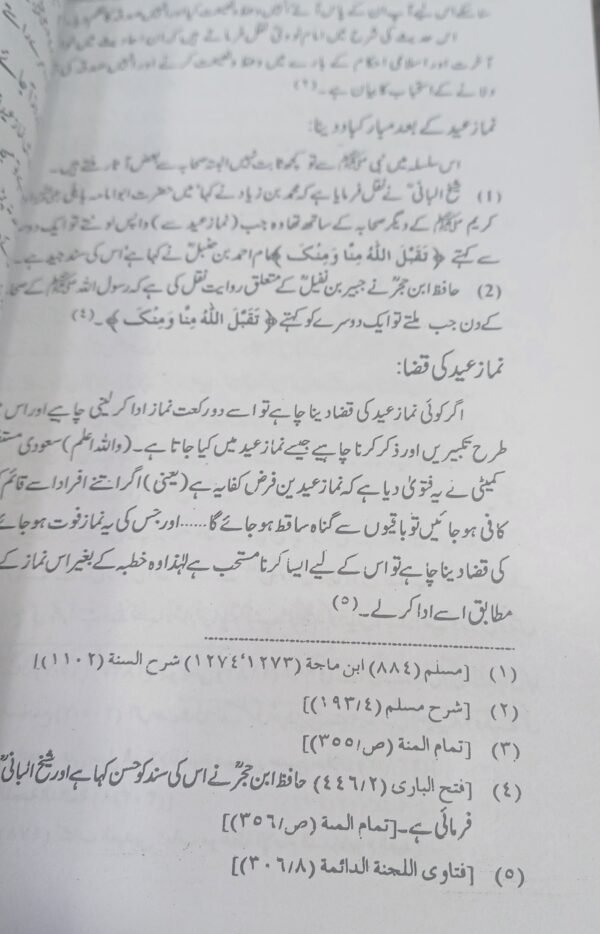 سکے اس لیے آپ ان کے پاس آئے انہیں وعظ و نصیحت کیا اور انہیں صدقہ کا حکم
اس حدیث کی شرح میں امام نووی نقل فرماتے ہیں کہ ان احادیث میں
آخرت اور اسلامی احکام کے بارے میں وعظ و نصیحت کرنے اور انہیں صدقہ کی
دلانے کے استحباب کا بیان ہے۔(۲)
نماز عید کے بعد مبارکباد دینا:
اس سلسلہ میں نبی ﷺ سے تو کچھ ثابت نہیں البتہ صحابہ سے بعض آثار ملتے ہیں۔
(1) شیخ البانیؒ نے نقل فرمایا ہے کہ محمد بن زیاد نے کہا "میں حضرت ابوامامہ باہلی
کریم ﷺ کے دیگر صحابہ کے ساتھ تھا وہ جب (نماز عید سے) واپس لوٹتے تو ایک دوسرے
سے کہتے ﴿ تَقَبَّلَ اللّٰهُ مِنَّا وَمِنْکَ ﴾ امام احمد بن حنبلؒ نے کہا ہے اس کی سند جید ہے۔
(2) حافظ ابن حجرؒ نے جبیر بن نفیلؒ کے متعلق روایت نقل کی ہے کہ رسول اللہ ﷺ کے صحابہ
کے دن جب ملتے تو ایک دوسرے کو کہتے ﴿ تَقَبَّلَ اللّٰهُ مِنَّا وَمِنْکَ ﴾۔(٤)
نماز عید کی قضا:
اگر کوئی نماز عید کی قضا دینا چاہے تو اسے دو رکعت نماز ادا کر لینی چاہیے اور اس میں
طرح تکبیریں اور ذکر کرنا چاہیے جیسے نماز عید میں کیا جاتا ہے۔(واللہ اعلم) سعودی
کمیٹی نے یہ فتویٰ دیا ہے کہ نماز عیدین فرض کفایہ ہے (یعنی) اگر اتنے افراد اسے قائم
کافی ہو جائیں تو باقیوں سے گناہ ساقط ہو جائے گا......اور جس کی یہ نماز فوت ہو جائے
کی قضا دینا چاہے تو اس کے لیے ایسا کرنا مستحب ہے لہٰذا وہ خطبہ کے بغیر اس نماز کے
مطابق اسے ادا کر لے۔(٥)
(١) [مسلم (٨٨٤) ابن ماجة (١٢٧٣، ١٢٧٤) شرح السنة (١١٠٢)]
(٢) [شرح مسلم (١٩٣/٤)]
(٣) [تمام المنة (ص/٣٥٥)]
(٤) [فتح الباری (٤٤٦/٢) حافظ ابن حجرؒ نے اس کی سند کو حسن کہا ہے اور شیخ البانیؒ
فرمائی ہے۔[تمام المنة (ص/٣٥٦)]
(٥) [فتاوی اللجنة الدائمة (٣٠٦/٨)]